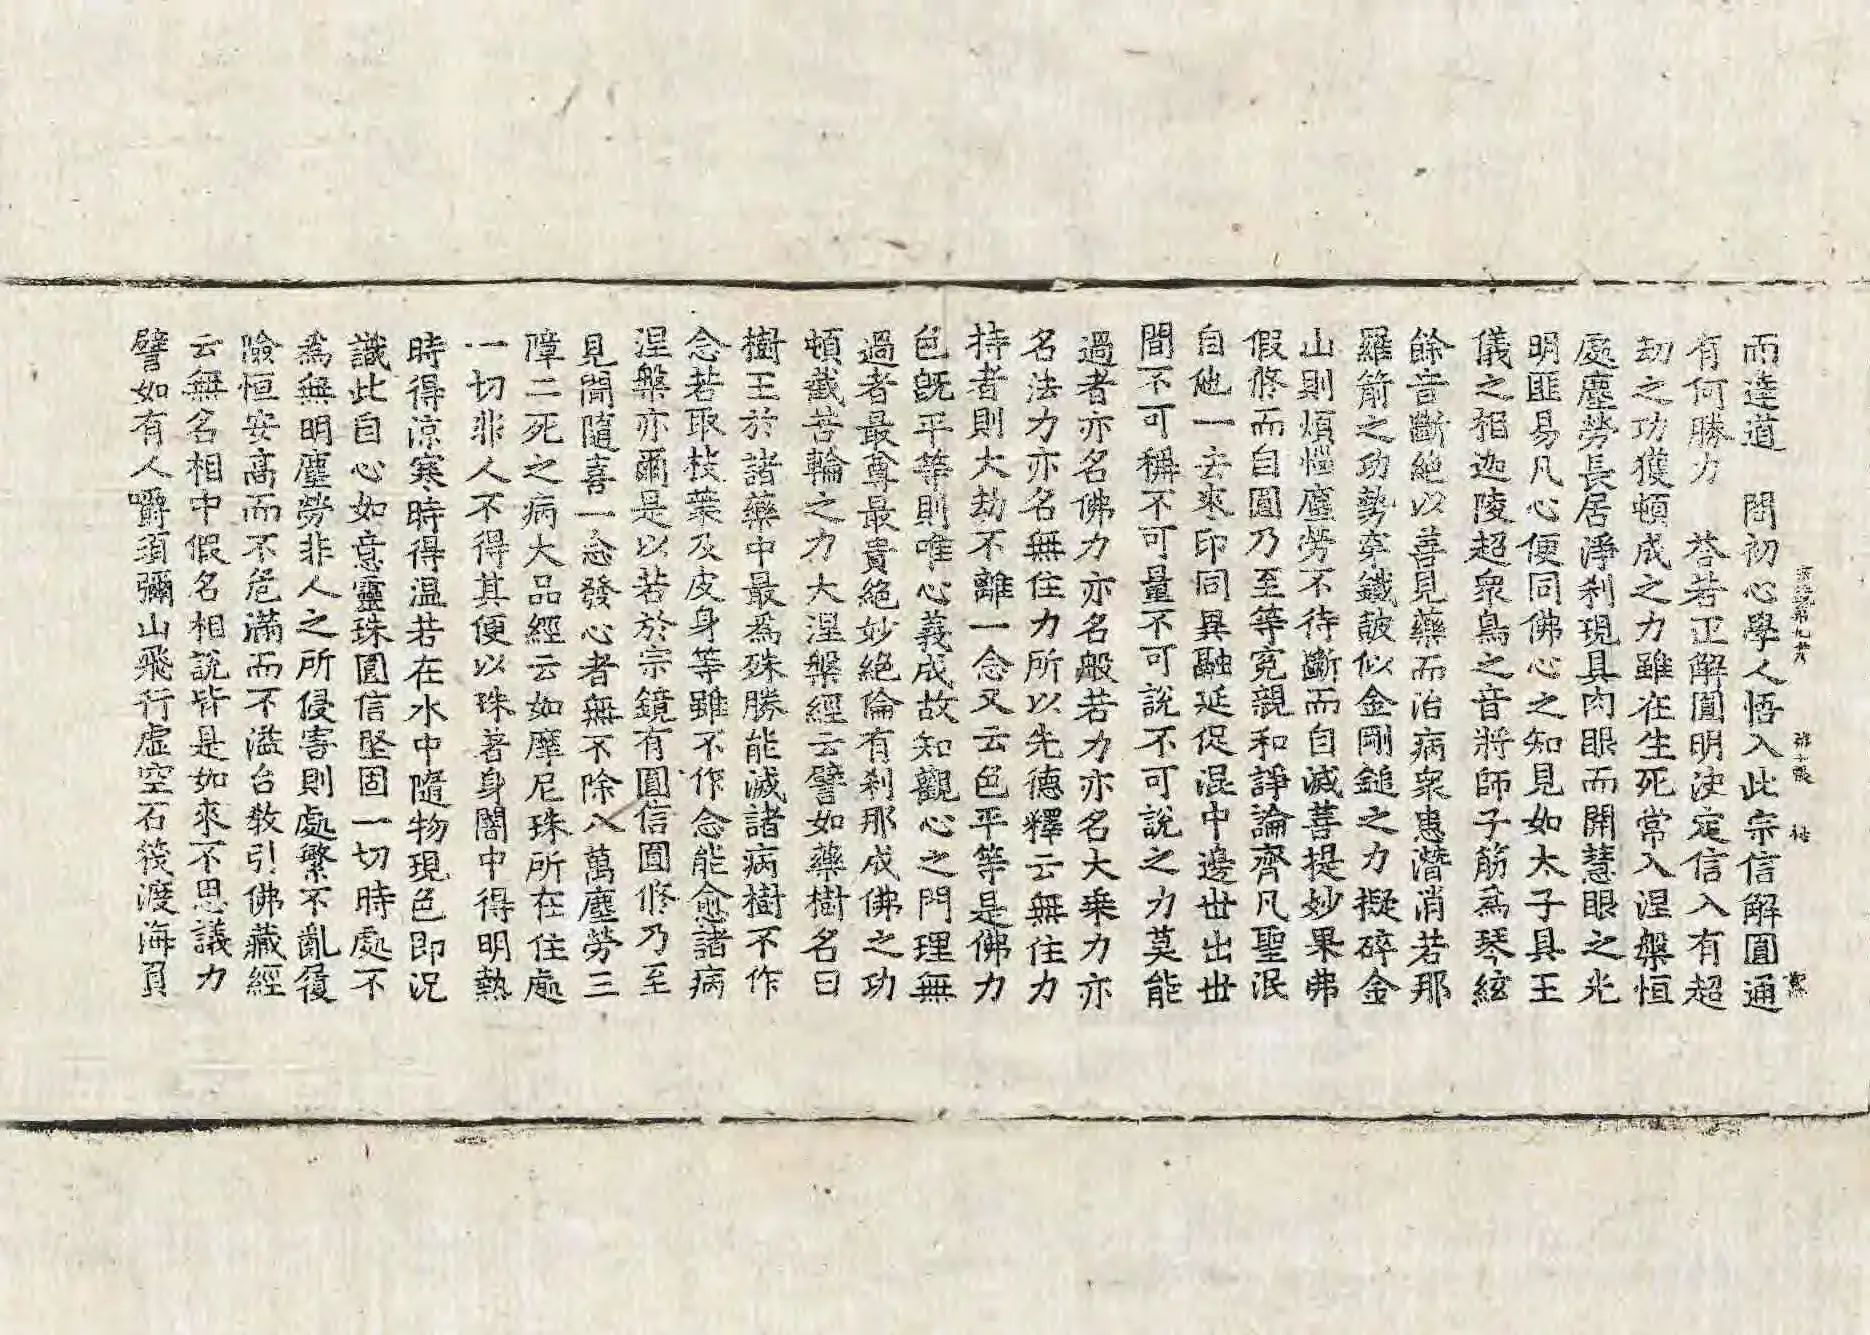 而達道　問初心學人悟入此宗信解圓通
有何勝力　荅若正解圓明決定信入有超
劫之功獲頓成之力雖在生死常入涅槃恒
處塵勞長居淨刹現具肉眼而開慧眼之光
明匪易凡心便同佛心之知見如太子具王
儀之相迦陵超衆鳥之音將師子筋爲琴絃
餘音斷絕以善見藥而治病衆患潛消若那
羅箭之功勢穿鐵皷似金剛鎚之力擬碎金
山則煩惱塵勞不待斷而自滅菩提妙果弗
假修而自圓乃至等冤親和諍論齊凡聖泯
自他一去來印同異融延促混中邊世出世
間不可稱不可量不可說不可說之力莫能
過者亦名佛力亦名般若力亦名大乘力亦
名法力亦名無住力所以先德釋云無住力
持者則大劫不離一念又云色平等是佛力
色旣平等則唯心義成故知觀心之門理無
過者最尊最貴絕妙絕倫有刹那成佛之功
頓截苦輪之力大涅槃經云譬如藥樹名曰
樹王於諸藥中最爲殊勝能滅諸病樹不作
念若取枝葉及皮身等雖不作念能愈諸病
涅槃亦爾是以若於宗鏡有圓信圓修乃至
見聞隨喜一念發心者無不除八萬塵勞三
障二死之病大品經云如摩尼珠所在住處
一切非人不得其便以珠著身闇中得明熱
時得涼寒時得溫若在水中隨物現色即況
識此自心如意靈珠圓信堅固一切時處不
爲無明塵勞非人之所侵害則處繁不亂履
險恒安高而不危滿而不溢台教引佛藏經
云無名相中假名相說皆是如來不思議力
譬如有人嚼須彌山飛行虛空石筏渡海負